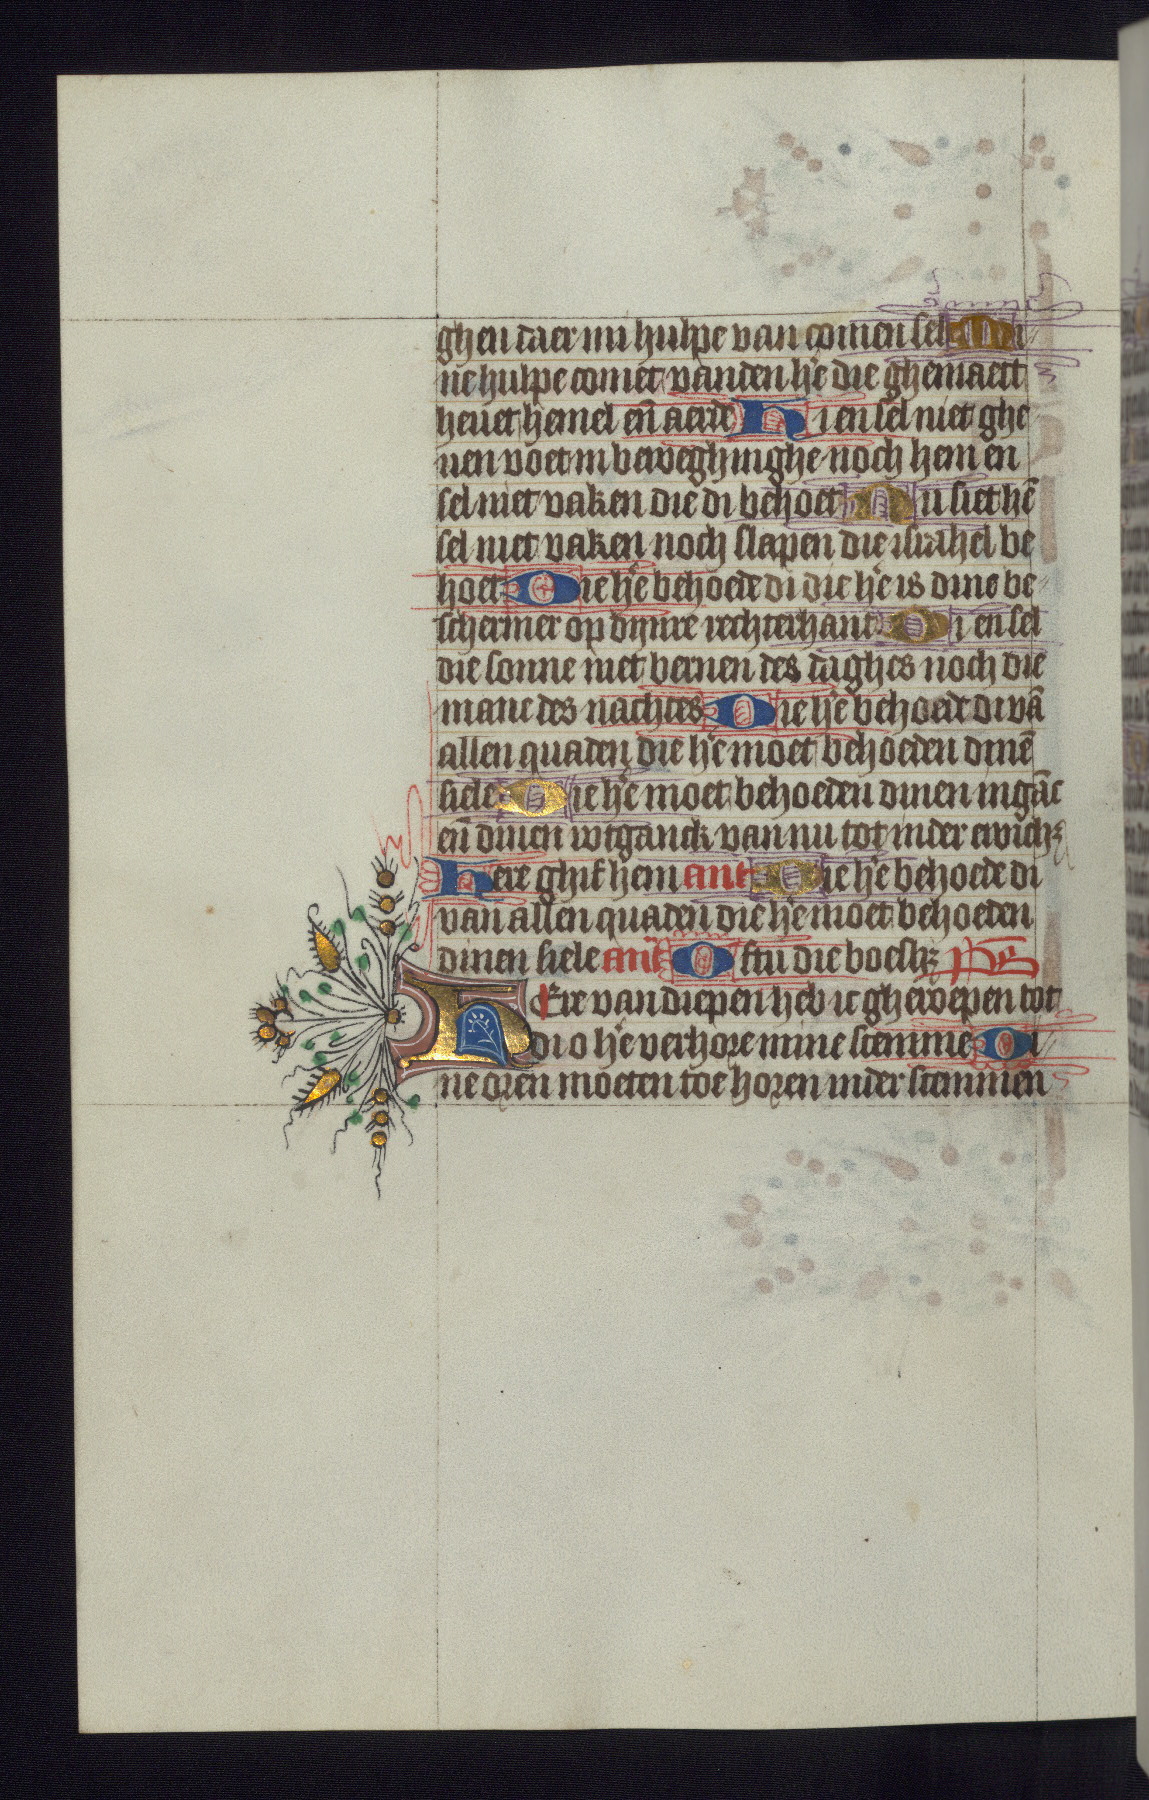 ghen daer mi hulpe van comen sel Mi
ne hulpe comet vanden hr̄e die ghemaect
heuet hemel en̄ aerde Hi en sel niet ghe
uen voet in beweghinghe noch hem en
sel niet vaken die di behoet Nu siet hē
sel niet vaken noch slapen die israhel be
hoet Die hr̄e behoede di die hr̄e is dine be
schermer op dijnre rechterhant Di en sel
die sonne niet bernen des daghes noch die
mane des nachtes Die hr̄e behoede di vā
allen quaden die hr̄e moet behoeden dinē
siele Die hr̄e moet behoeden dinen ingāc
en̄ dinen wtganck van nu tot inder ewichꝫ
Here ghif hem ant̄ Die hr̄e behoede di
van allen quaden die hr̄e moet behoeden
dinen siele ant̄ Ostu die boeshꝫ ps
HEre van diepen heb ic gheroepen tot
di o hr̄e verhore mine stemme Di
ne oren moeten toe horen inder stemmen